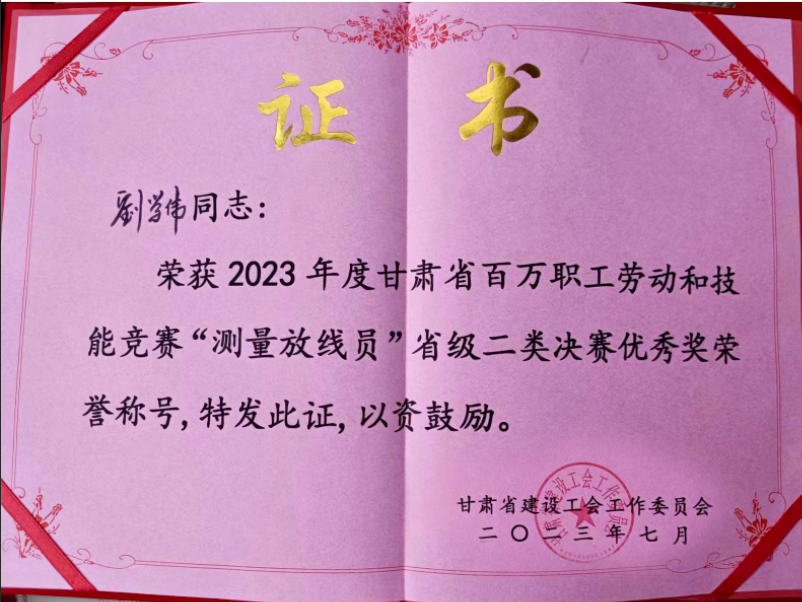 证书
刘学伟同志:
荣获2023年度甘肃省百万职工劳动和技
能竞赛“测量放线员”省级二类决赛优秀奖荣
誉称号,特发此证,以资鼓励。
甘肃省建设工会工作委员会
二〇二三年七月
甘肃省建设工会工作委员会